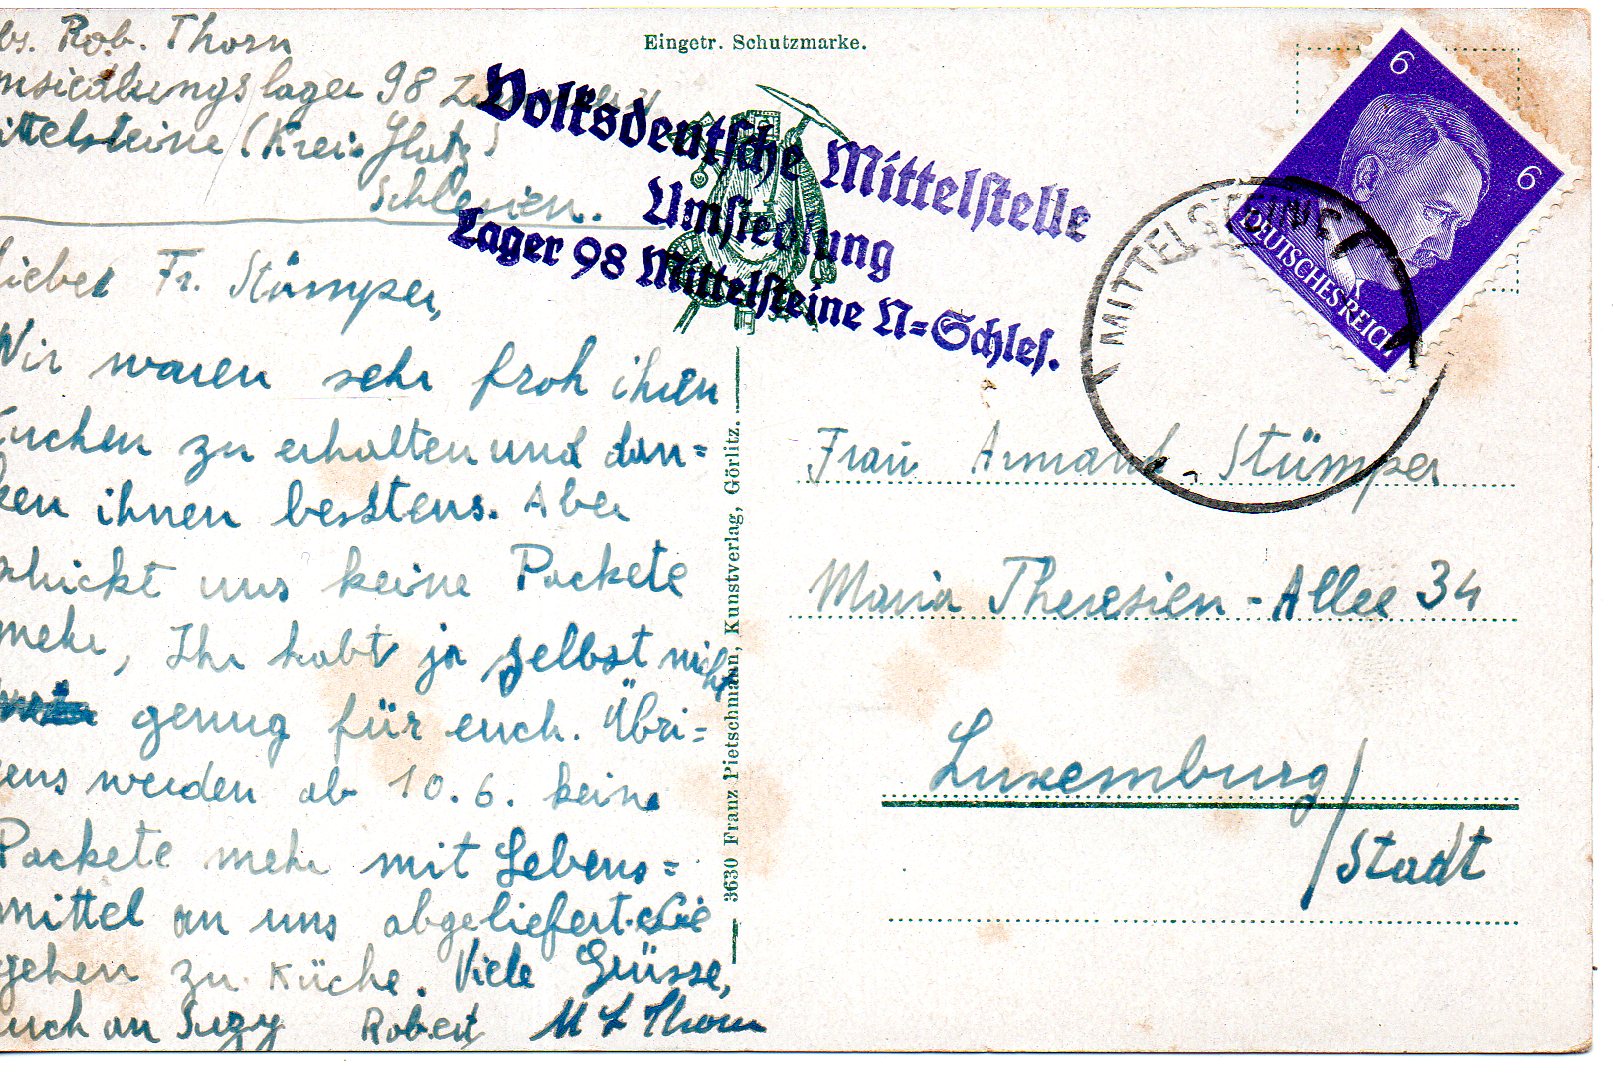 bs. Rob. Thorn
msiedlungslager 98
ittelsteine (Kreis Glatz)
Schlesien.
Lieber Fr. Stümper,
Wir waren sehr froh ihren
Kuchen zu erhalten und dan=
ken ihnen besstens. Aber
schickt uns keine Packete
mehr, Ihr habt ja selbst nicht
genug für euch. Übri=
gens werden ab 10.6. keine
Packete mehr mit Lebens=
mittel an uns abgeliefert. Sie
gehen zu Küche. Viele Grüsse,
auch an Suzy Robert M L Thorn
Eingetr. Schutzmarke.
Volksdeutsche Mittelstelle
Umsiedlung
Lager 98 Mittelsteine N=Schles.
3630 Franz Pietschmann, Kunstverlag, Görlitz.
6 6
DEUTSCHES REICH
MITTELSTEINE
Frau Armand Stümper
Maria Theresien-Allee 34
Luxemburg/
Stadt